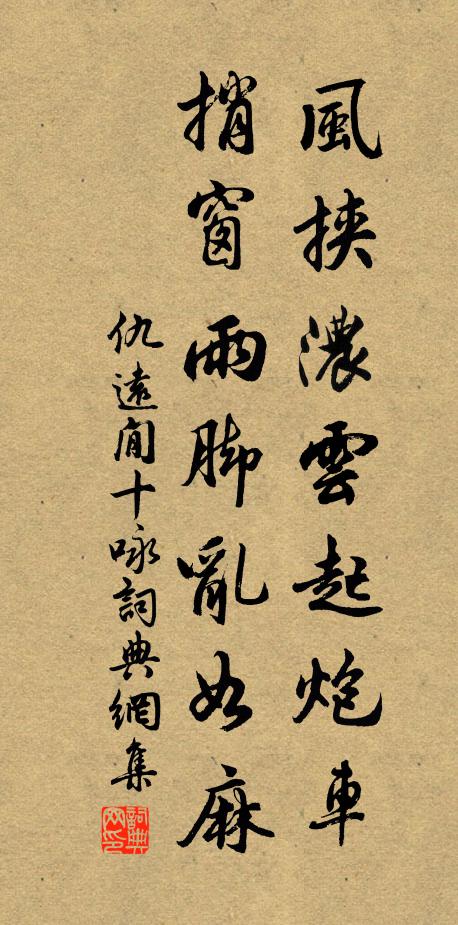 風挾濃雲起炮車
捎窗雨脚亂如麻
仇遠閒十咏詞典網集
詞典网印